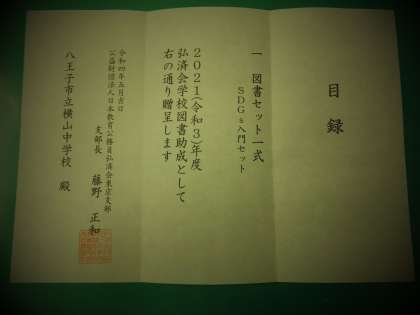 目録
一 図書セット一式
SDGs入門セット
2021(令和3)年度
弘済会学校図書助成として
右の通り贈呈します
令和四年五月吉日
公益財団法人日本教育公務員弘済会東京支部
支部長 藤野 正和
八王子市立横山中学校 殿